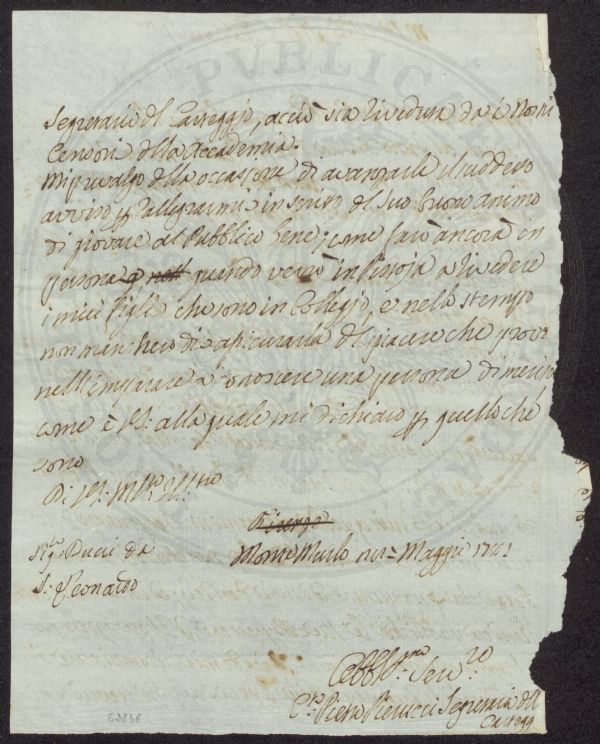 Segretario del Carteggio, acciò sia riveduta da i Nostri
Censori della Accademia.
Mi prevalgo della occasione di avanzarle il suddetto
avviso p rallegrarmi in sentire del suo buon animo
di giovare al Pubblico bene; come farò ancora in
persona quando verrò in Pistoja a rivedere
i miei figli che sono in Collegio, e nello stempo
non mancherò di assicurarla del piacere che provo
nell imparare a conoscere una persona di merito
come è VS: alla quale mi dichiaro p quello che
sono
Di VS: Mto Illtre
Sigre Pucci da
S: Leonardo
Firenze
Monte Murlo Maggio 1741
Obblmo Serre
Pietro Pierucci Segretario del
Carteggo
52836
PVBLICA